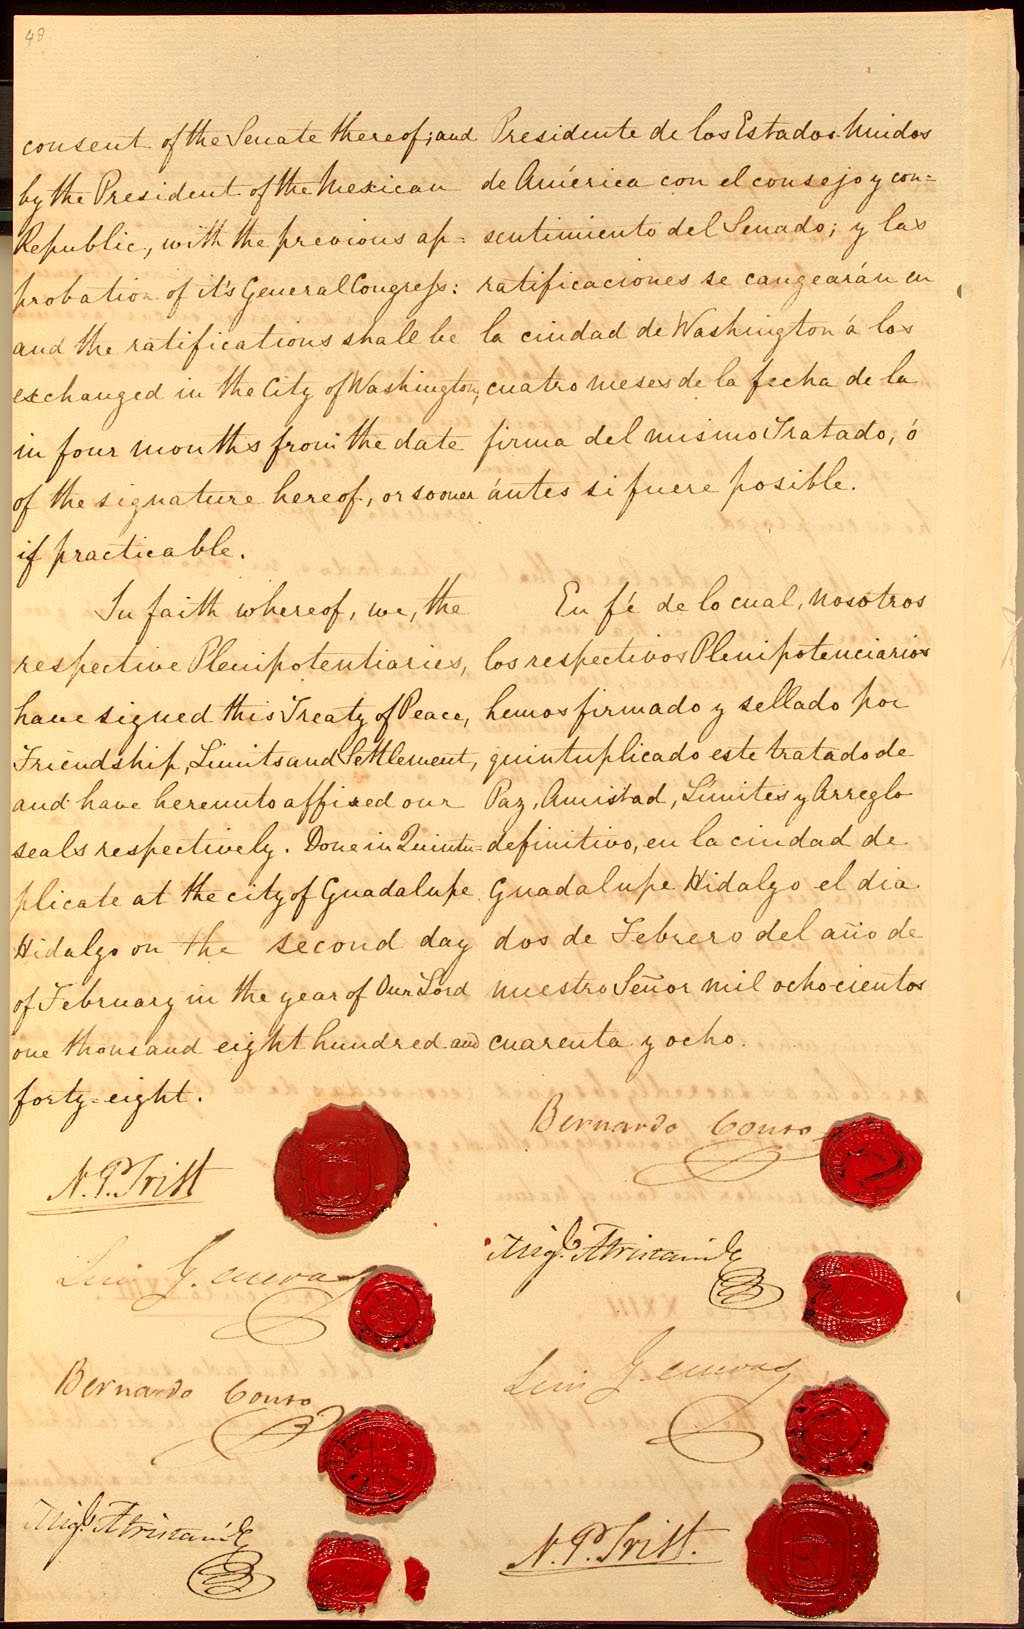 48
consent of the Senate thereof; and
by the President of the Mexican
Republic, with the previous ap=
probation of it's General Congress:
and the ratifications shall be
exchanged in the City of Washington,
in four months from the date
of the signature hereof, or sooner
if practicable.
In faith whereof, we, the
respective Plenipotentiaries,
have signed this Treaty of Peace,
Friendship, Limits and Settlement,
and have hereunto affixed our
seals respectively. Done in Quintu=
plicate at the city of Guadalupe
Hidalgo on the second day
of February in the year of Our Lord
one thousand eight hundred and
forty=eight.
N. P. Trist
Luis G. Cuevas
Bernardo Couto
Migl. Atristain
Presidente de los Estados Unidos
de América con el consejo y con=
sentimiento del Senado; y las
ratificaciones se cangearán en
la ciudad de Washington á los
cuatro meses de la fecha de la
firma del mismo Tratado, ó
ántes si fuere posible.
En fé de lo cual, nosotros
los respectivos Plenipotenciarios
hemos firmado y sellado por
quintuplicado este tratado de
Paz, Amistad, Límites y Arreglo
definitivo, en la ciudad de
Guadalupe Hidalgo el dia
dos de Febrero del año de
nuestro Señor mil ochocientos
cuarenta y ocho.
Bernardo Couto
Migl. Atristain
Luis G. Cuevas
N. P. Trist.